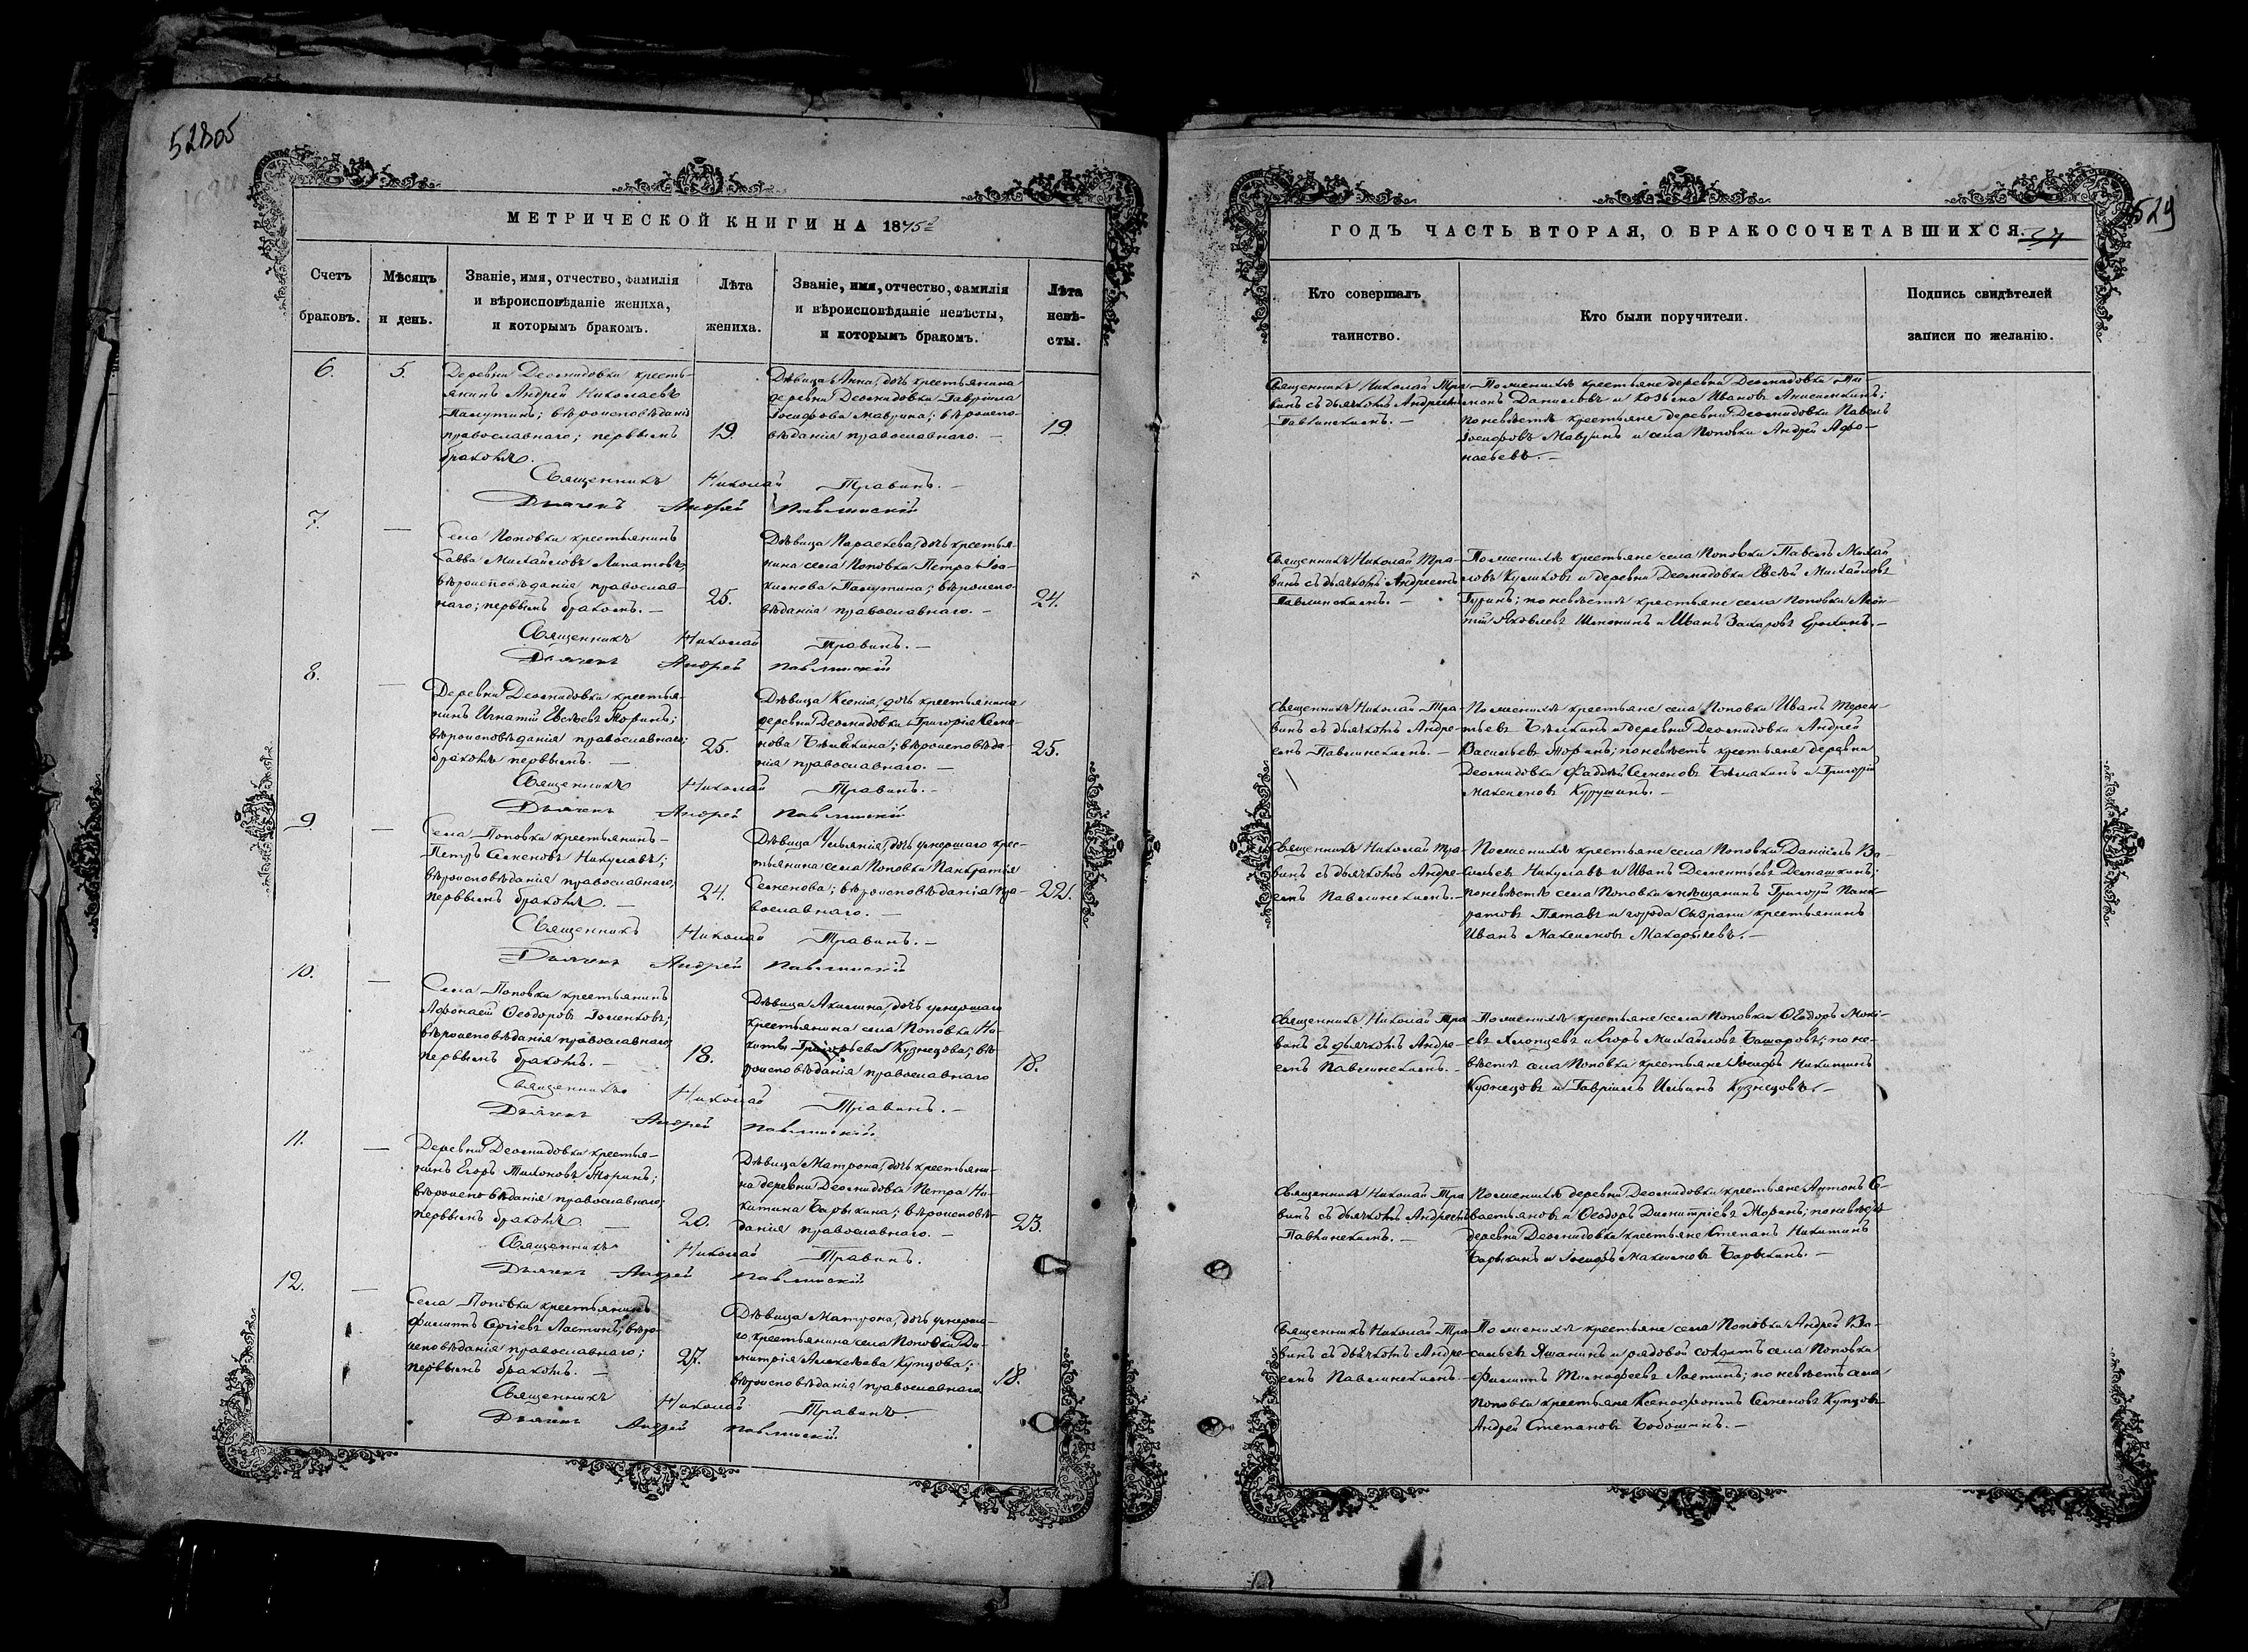 52805
МЕТРИЧЕСКОЙ КНИГИ НА 1875й
Счетъ
браковъ.
Мѣсяцъ
и день.
Званіе, имя, отчество, фамилія
и вѣроисповѣданіе жениха,
и которымъ бракомъ.
Лѣта
жениха.
Званіе, имя, отчество, фамилія
и вѣроисповѣданіе невѣсты,
и которымъ бракомъ.
Лѣта
невѣ-
сты.
6.
5.
Деревни Деомидовки кресть-
янинъ Андрей Николаевъ
православнаго; первымъ
бракомъ.
19.
Дѣвица Анна, дочь крестьянина
деревни Деомидовки Гавріила
Іосифова Маврина; вѣроиспо-
вѣданія православнаго. —
19.
Священникъ Николай Травинъ. —
Дьячекъ Андрей Павлинскій
7.
—
Села Поповки крестьянинъ
Савва Михайловъ Липатовъ,
вѣроисповѣданія православ-
наго; первымъ бракомъ. —
25.
Дѣвица Параскева, дочь крестья-
нина села Поповки Петра Іоа-
кимова; вѣроиспо-
вѣданія православнаго. —
24.
Священникъ Николай Травинъ. —
Дьячекъ Андрей Павлинскій
8.
—
Деревни Деомидовки крестья-
нинъ Игнатій Евсѣевъ;
вѣроисповѣданія православнаго;
бракомъ первымъ. —
25.
Дѣвица Ксенія, дочь крестьянина
деревни Деомидовки Григорія Семе-
нова; вѣроисповѣда-
нія православнаго. —
25.
Священникъ Николай Травинъ. —
Дьячекъ Андрей Павлинскій
9.
—
Села Поповки крестьянинъ
Петръ Семеновъ;
вѣроисповѣданія православнаго,
первымъ бракомъ. —
24.
Дѣвица Ульянія, дочь умершаго крес-
тьянина села Поповки Панкратія
Семенова; вѣроисповѣданія пра-
вославнаго. —
22.
Священникъ Николай Травинъ. —
Дьячекъ Андрей Павлинскій
10.
—
Села Поповки крестьянинъ
Афонасій Ѳеодоровъ;
вѣроисповѣданія православнаго
первымъ бракомъ. —
18.
Дѣвица Акилина, дочь умершаго
крестьянина села Поповки Ни-
киты Григорьева Кузнецова; вѣ
роисповѣданія православнаго
18.
Священникъ Николай Травинъ. —
Дьячекъ Андрей Павлинскій
11.
—
Деревни Деомидовки крестья-
нинъ Егоръ Тихоновъ Моринъ;
вѣроисповѣданія православнаго;
первымъ бракомъ —
20.
Дѣвица Матрона, дочь крестьяни-
на деревни Деомидовки Петра Ни-
китина Барыкина; вѣроисповѣ-
данія православнаго. —
23.
Священникъ Николай Травинъ.
Дьячекъ Андрей Павлинскій
12.
—
Села Поповки крестьянинъ
Филиппъ Сергіевъ Ластинъ; вѣро-
исповѣданія православнаго;
первымъ бракомъ. —
27.
Дѣвица Матрона, дочь умерша-
го крестьянина села Поповки Ди-
митрія Алексѣева Купцова;
вѣроисповѣданія православнаго
18.
Священникъ Николай Травинъ.
Дьячекъ Андрей Павлинскій
529
ГОДЪ ЧАСТЬ ВТОРАЯ, О БРАКОСОЧЕТАВШИХСЯ.
Кто совершалъ
таинство.
Кто были поручители.
Подпись свидѣтелей
записи по желанію.
Священникъ Николай Тра
винъ съ дьячкомъ Андреемъ
Павлинскимъ. —
По женихѣ крестьяне деревни Деомидовки Ти-
монъ Даниловъ и Козьма Ивановъ Анисимкинъ;
по невѣстѣ крестьяне деревни Деомидовки Павелъ
Іосифовъ Мавринъ и села Поповки Андрей Афо-
насьевъ. —
Священникъ Николай Тра-
винъ съ дьячкомъ Андреемъ
Павлинскимъ. —
По женихѣ крестьяне села Поповки Павелъ Михай
ловъ Куликовъ и деревни Деомидовки Евсѣй Михайловъ
Гуринъ; по невѣстѣ крестьяне села Поповки Леон-
тій Яковлевъ и Иванъ Захаровъ
Священникъ Николай Тра-
винъ съ дьячкомъ Андре-
емъ Павлинскимъ. —
По женихѣ крестьяне села Поповки Иванъ Терен-
тьевъ и деревни Деомидовки Андрей
Васильевъ Моринъ; по невѣстѣ крестьяне деревни
Деомидовки Фаддѣй Семеновъ и Григорій
Максимовъ Курушинъ. —
Священникъ Николай Тра-
винъ съ дьячкомъ Андре-
емъ Павлинскимъ. —
По женихѣ крестьяне села Поповки Даніилъ Ва-
сильевъ и Иванъ Дементьевъ Демашкинъ;
по невѣстѣ села Поповки мѣщанинъ Григорій Панк-
ратовъ и города Сызрани крестьянинъ
Иванъ Максимовъ
Священникъ Николай Тра
винъ съ дьячкомъ Андре-
емъ Павлинскимъ. —
По женихѣ крестьяне села Поповки Ѳеодоръ Моки-
евъ и Егоръ Михайловъ; по не-
вѣстѣ села Поповки крестьяне Іосифъ Никитинъ
Кузнецовъ и Гавріилъ Ильинъ Кузнецовъ. —
Священникъ Николай Тра
винъ съ дьячкомъ Андреемъ
Павлинскимъ. —
По женихѣ деревни Деомидовки крестьяне Антонъ Се-
вастьяновъ и Ѳеодоръ Димитріевъ Моринъ; по невѣстѣ
деревни Деомидовки крестьяне Степанъ Никитинъ
Барыкинъ и Іосифъ Максимовъ Барыкинъ. —
Священникъ Николай Тра
винъ съ дьячкомъ Андре-
емъ Павлинскимъ. —
По женихѣ крестьяне села Поповки Андрей Ва-
сильевъ и рядовой солдатъ села Поповки
Филиппъ Тимофеевъ Ластинъ; по невѣстѣ села
Поповки крестьяне Ксенофонтъ Семеновъ Купцовъ
Андрей Степановъ